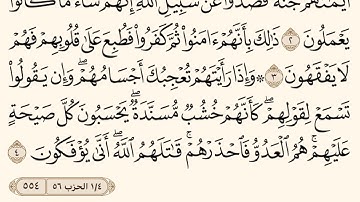 أَيْمَٰنَهُمْ جُنَّةً فَصَدُّوا۟ عَن سَبِيلِ ٱللَّهِ إِنَّهُمْ سَآءَ مَا كَانُوا۟
يَعْمَلُونَ ٢ ذَٰلِكَ بِأَنَّهُمْ ءَامَنُوا۟ ثُمَّ كَفَرُوا۟ فَطُبِعَ عَلَىٰ قُلُوبِهِمْ فَهُمْ
لَا يَفْقَهُونَ ٣ ۞ وَإِذَا رَأَيْتَهُمْ تُعْجِبُكَ أَجْسَامُهُمْ ۖ وَإِن يَقُولُوا۟
تَسْمَعْ لِقَوْلِهِمْ ۖ كَأَنَّهُمْ خُشُبٌ مُّسَنَّدَةٌ ۖ يَحْسَبُونَ كُلَّ صَيْحَةٍ
عَلَيْهِمْ ۚ هُمُ ٱلْعَدُوُّ فَٱحْذَرْهُمْ ۚ قَٰتَلَهُمُ ٱللَّهُ ۖ أَنَّىٰ يُؤْفَكُونَ ٤
١/٤ الحزب ٥٦ ٥٥٤